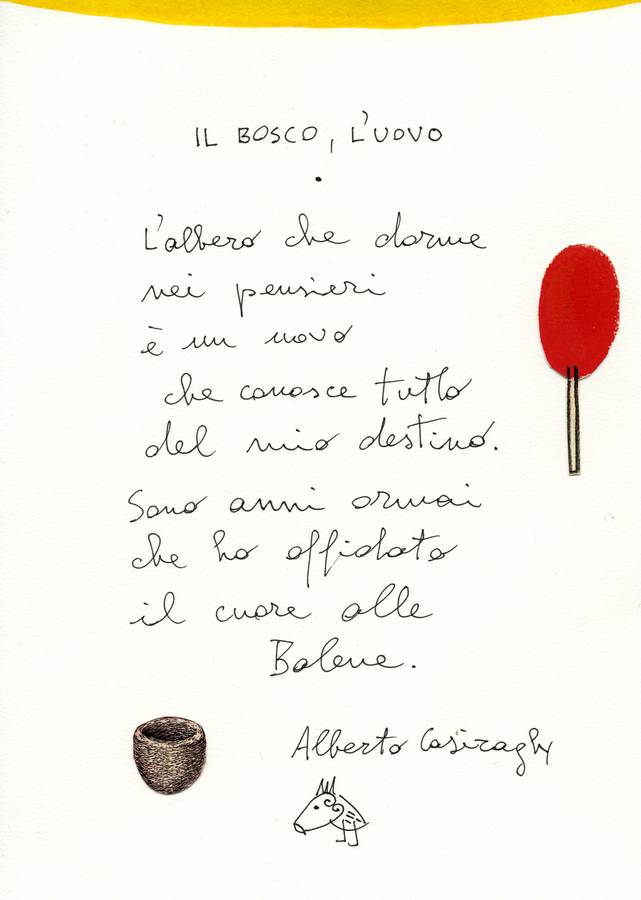 IL BOSCO, L'UOVO
.
L'albero che dorme
nei pensieri
è un uovo
che conosce tutto
del mio destino.
Sono anni ormai
che ho affidato
il cuore alle
Balene.
Alberto Casiraghy